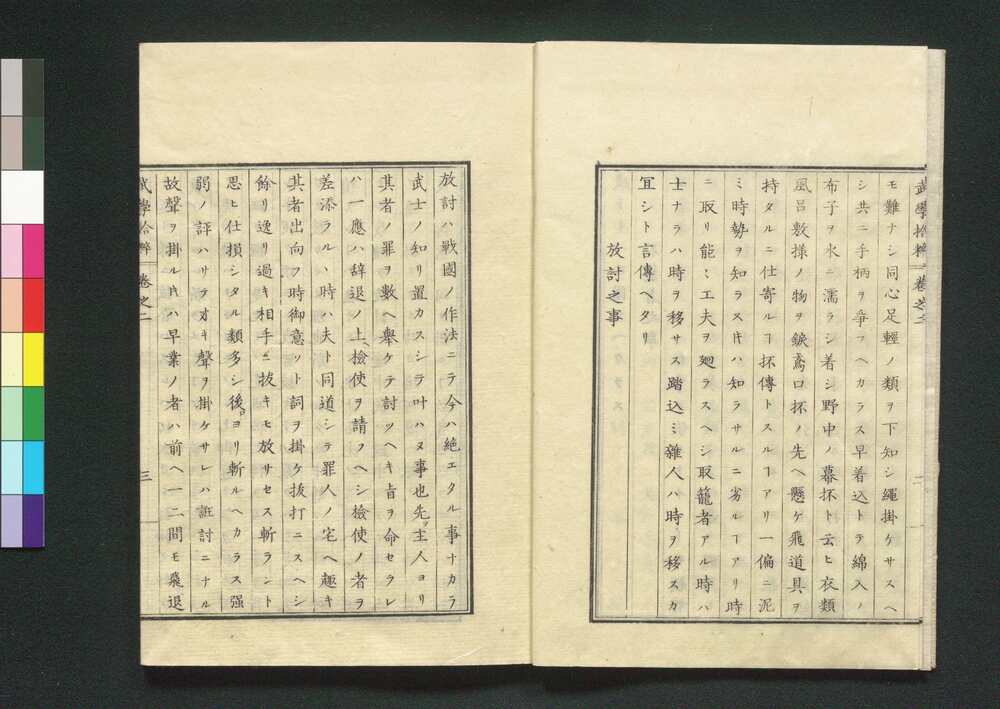 武學拾粹 卷之二 二
モ難ナシ同心足輕ノ類ヲ下知シ繩掛ケサスヘ
シ共ニ手柄ヲ爭フヘカラス早着込トテ綿入ノ
布子ヲ水ニ濡ラシ着シ野中ノ幕抔ト云ヒ衣類
風呂敷様ノ物ヲ鎹鳶口抔ノ先ヘ懸ケ飛道具ヲ
持タルニ仕寄ルヿ抔傳トスルヿアリ一偏ニ泥
ミ時勢ヲ知ラスキハ知ラサルニ劣ルヿアリ時
ニ取リ能〻工夫ヲ廻ラスヘシ取籠者アル時ハ
士ナラハ時ヲ移サス踏込ミ雜人ハ時ヲ移スカ
冝シト言傳ヘタリ
放討之事
放討ハ戰國ノ作法ニテ今ハ絶エタル事ナカラ
武士ノ知リ置カスシテ叶ハヌ事也先ツ主人ヨリ
其者ノ罪ヲ數ヘ擧ケテ討ツヘキ旨ヲ命セラレ
ハ一應ハ辞退ノ上、檢使ヲ請フヘシ檢使ノ者ヲ
差添ラルヽ時ハ夫ト同道シテ罪人ノ宅ヘ趣キ
其者出向フ時御意ット詞ヲ掛ケ抜打ニスヘシ
餘リ逸リ過キ相手ニ抜キモ放サセス斬ラント
思ヒ仕損シタル類多シ後ロヨリ斬ルヘカラス强
弱ノ評ハリテオキ聲ヲ掛ケサレハ誑討ニナル
故聲ヲ掛ル𪜈ハ早業ノ者ハ前ヘ一二間モ飛退
武學拾粹 卷之二 三